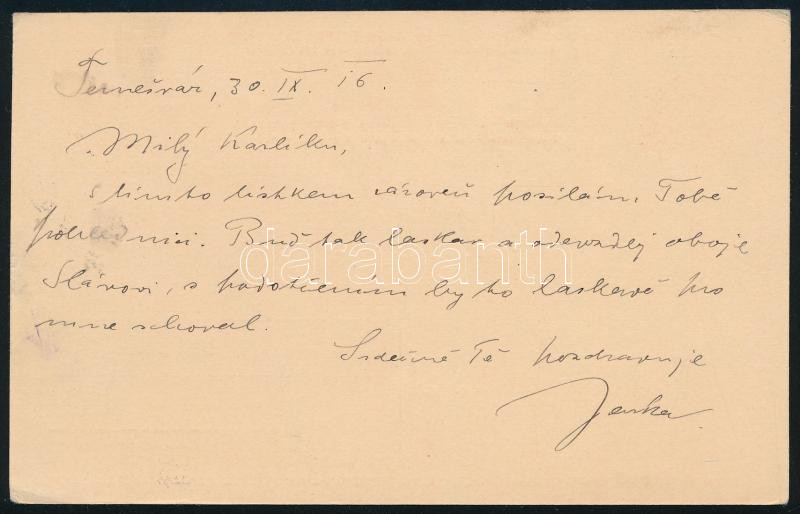 Temešvár, 30. IX. 16.
Milý Karlíku,
s tímto lístkem zároveň posílám Tobě
pohlednici. Buď tak laskav a odevzdej oboje
Slávovi, s podotčením by to laskavě pro
mne schoval.
Srdečně Tě pozdravuje
Jenka
darabanth